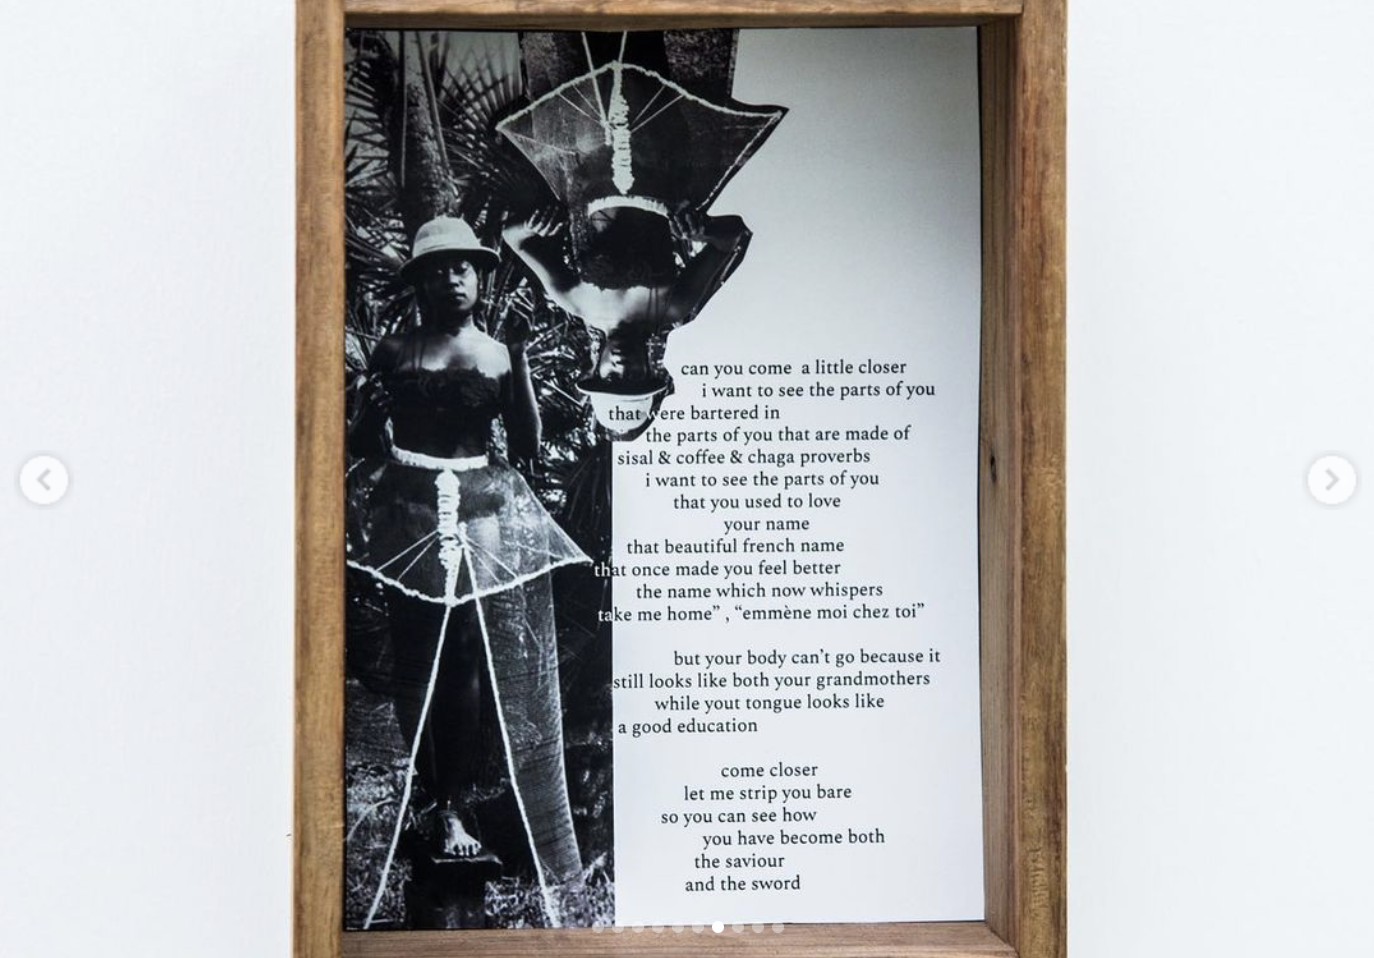 can you come a little closer
i want to see the parts of you
that were bartered in
the parts of you that are made of
sisal & coffee & chaga proverbs
i want to see the parts of you
that you used to love
your name
that beautiful french name
that once made you feel better
the name which now whispers
take me home” , “emmène moi chez toi”
but your body can’t go because it
still looks like both your grandmothers
while yout tongue looks like
a good education
come closer
let me strip you bare
so you can see how
you have become both
the saviour
and the sword